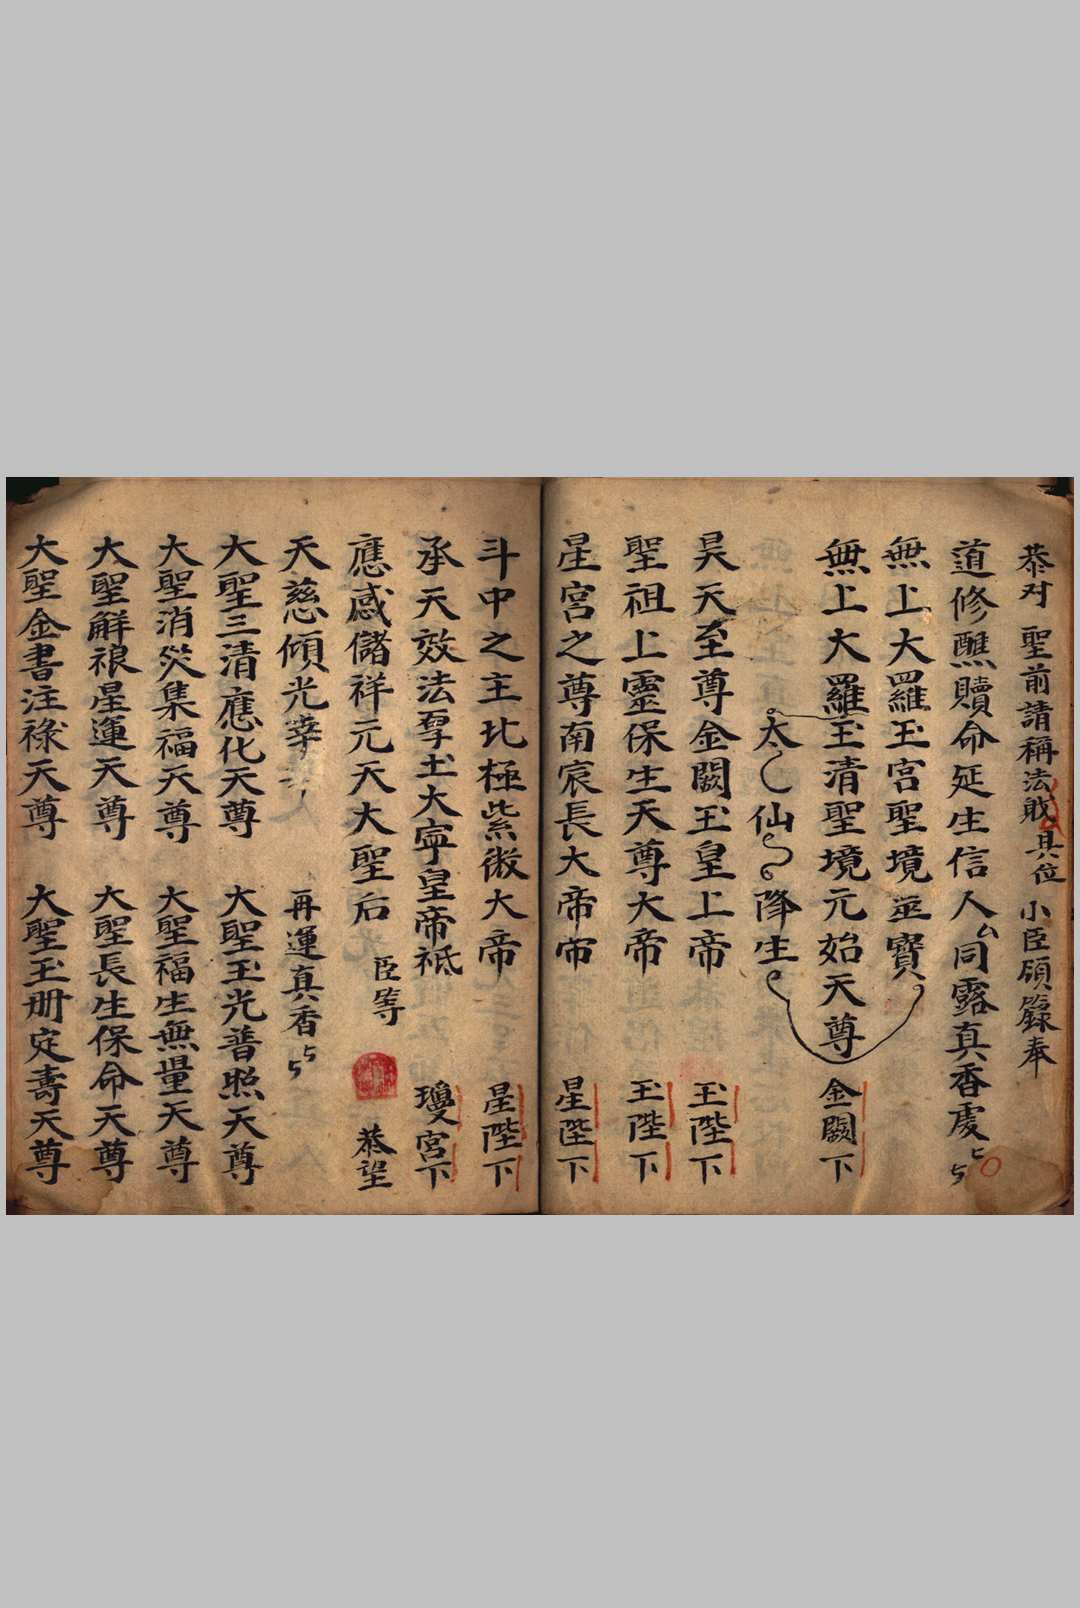 恭对 聖前請稱法 具位 小臣 奉
道修醮贖命延生信人厶同露真香虔
無上大羅玉宮聖境 寶
無上大羅玉清聖境元始天尊 金闕下
太 仙 降生
昊天至尊金闕玉皇上帝 玉陛下
聖祖上靈保生天尊大帝 玉陛下
星宮之尊南宸長大帝帝 星陛下
斗中之主北極紫微大帝 星陛下
承天效法厚土大寧皇帝祗 瓊宮下
應感儲祥元天大聖后 臣等 恭望
天慈傾光 再運真香
大聖三清應化天尊 大聖玉光普照天尊
大聖消災集福天尊 大聖福生無量天尊
大聖解 星運天尊 大聖長生保命天尊
大聖金書注祿天尊 大聖玉冊定壽天尊